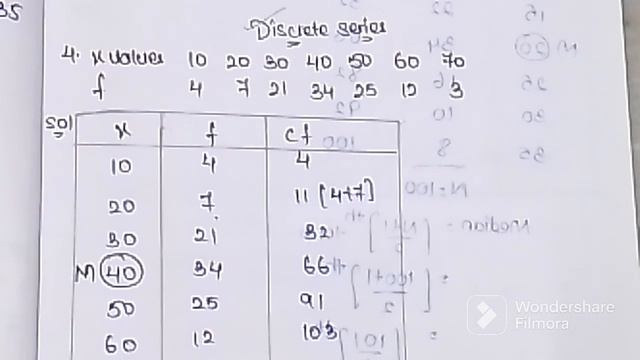 35
Discrete series
4. x values 10 20 30 40 50 60 70
f 4 7 21 34 25 12 3
Sol x f cf
10 4 4
20 7 11 [4+7]
30 21 32
M 40 34 66
50 25 91
60 12 103
Wondershare
Filmora